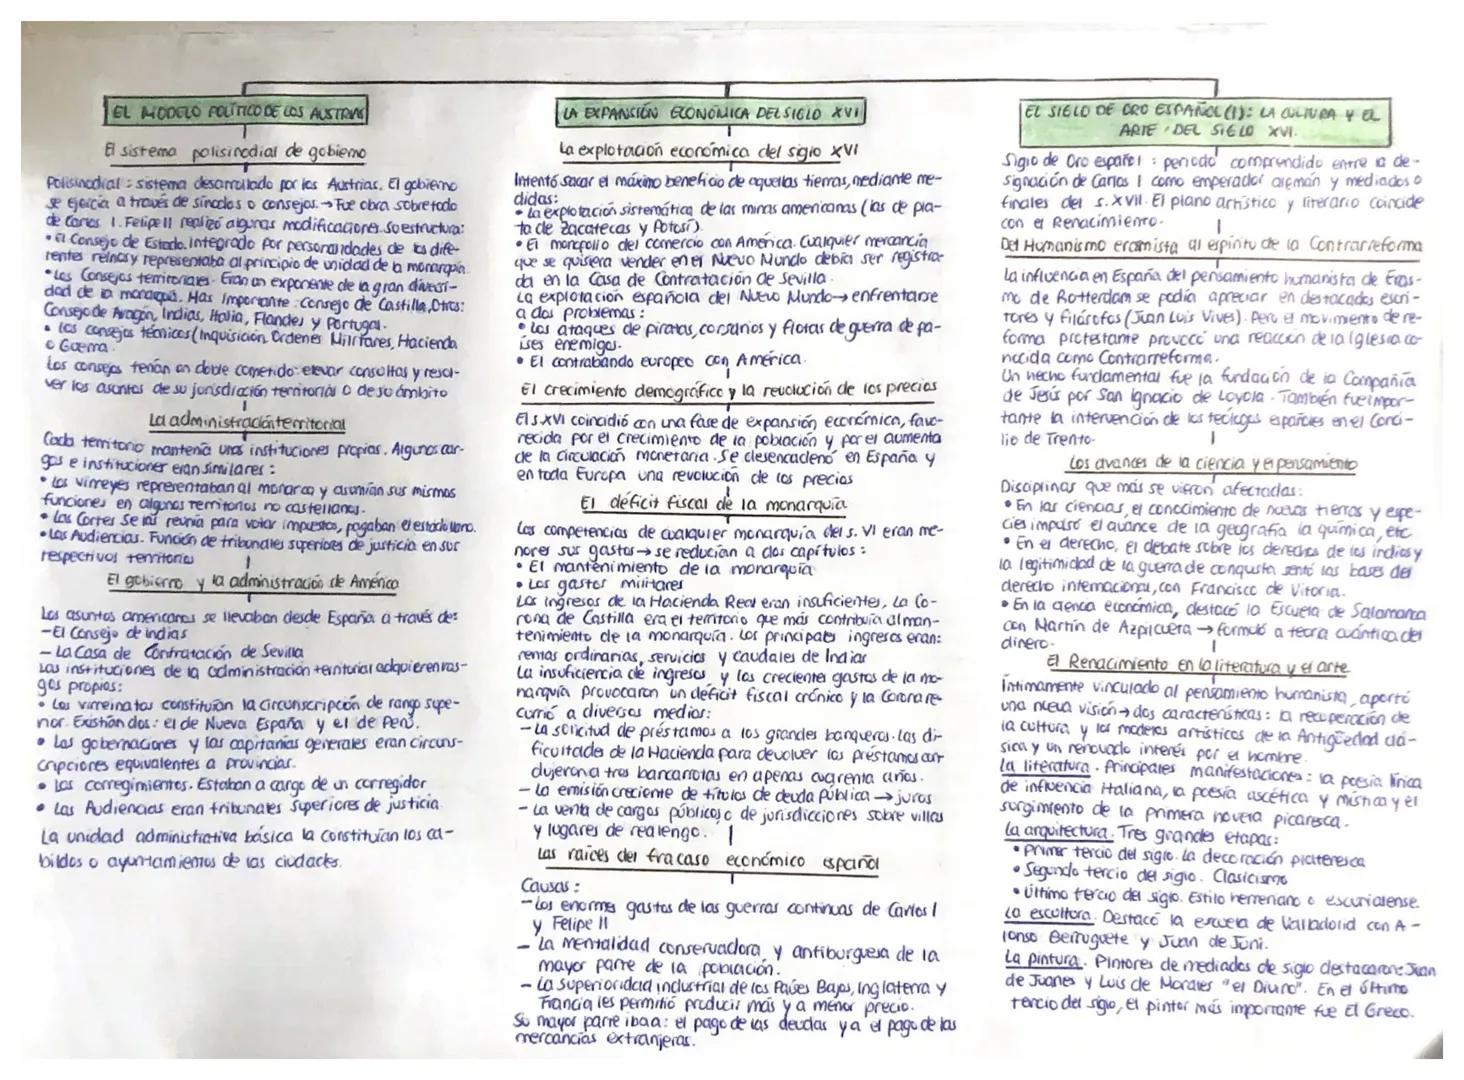 EL MODELO POLÍTICO DE LOS AUSTRIAS
El sistema polisinodial de gobierno
Polisinodial: sistema desarrollado por los Austrias. El gobierno
se ejercía a través de sínodos o consejos.→ Fue obra sobretodo
de Carlos I. Felipe II realizó algunas modificaciones. Su estructura:
• El Consejo de Estado. Integrado por personalidades de los dife-
rentes reinos y representaba al principio de unidad de la monarquía.
• Los Consejos territoriales. Eran un exponente de la gran diversi-
dad de la monarquía. Mas importante: Consejo de Castilla, Otros:
Consejo de Aragón, Indias, Italia, Flandes y Portugal.
• Los consejos técnicos (Inquisición, Ordenes Militares, Hacienda
o Guerra.
Los consejos tenían un doble cometido: elevar consultas y resol-
ver los asuntos de su jurisdicción territorial o de su ámbito
La administración territorial
Cada territorio mantenía unas instituciones propias. Algunos car-
gos e instituciones eran similares:
• Los virreyes representaban al monarca y asumían sus mismas
funciones en algunos territorios no castellanos.
• Las Cortes se las reunía para votar impuestos, pagaban el estado llano.
• Las Audiencias. Función de tribunales superiores de justicia en sus
respectivos territorios
El gobierno y la administración de América
Los asuntos americanos se llevaban desde España a través de:
- El Consejo de indias
- La Casa de Contratación de Sevilla
Las instituciones de la administración territorial adquieren ras-
gos propios:
• Los virreinatos constituían la circunscripción de rango supe-
rior. Existían dos: el de Nueva España y el de Perú.
• Las gobernaciones y las capitanías generales eran circuns-
cripciones equivalentes a provincias.
• Los corregimientos. Estaban a cargo de un corregidor
• Las Audiencias eran tribunales superiores de justicia
La unidad administrativa básica la constituían los ca-
bildos o ayuntamientos de las ciudades.
LA EXPANSIÓN ECONÓMICA DEL SIGLO XVI
La explotación económica del siglo XVI
Intentó sacar el máximo beneficio de aquellas tierras, mediante me-
didas:
• La explotación sistemática de las minas americanas (las de pla-
ta de Zacatecas y Potosí).
• El monopolio del comercio con América. Cualquier mercancía
que se quisiera vender en el Nuevo Mundo debía ser registra-
da en la Casa de Contratación de Sevilla.
La explotación española del Nuevo Mundo → enfrentarse
a dos problemas:
• Los ataques de piratas, corsarios y flotas de guerra de pa-
íses enemigos.
• El contrabando europeo con América.
El crecimiento demográfico y la revolución de los precios
El s.XVI coincidió con una fase de expansión económica, favo-
recida por el crecimiento de la población y por el aumento
de la circulación monetaria. Se desencadenó en España y
en toda Europa una revolución de los precios
El déficit fiscal de la monarquía
Las competencias de cualquier monarquía del s. VI eran me-
nores sus gastos → se reducían a dos capítulos:
• El mantenimiento de la monarquía
• Los gastos militares
Los ingresos de la Hacienda Real eran insuficientes, La Co-
rona de Castilla era el territorio que más contribuía al man-
tenimiento de la monarquía. Los principales ingresos eran:
rentas ordinarias, servicios y caudales de Indias
La insuficiencia de ingresos y los crecientes gastos de la mo-
narquía provocaron un déficit fiscal crónico y la Corona re-
currió a diversos medios:
- La solicitud de préstamos a los grandes banqueros. Las di-
ficultades de la Hacienda para devolver los préstamos con-
dujeron a tres bancarrotas en apenas cuarenta años.
- La emisión creciente de títulos de deuda pública → juros
- La venta de cargos públicos o de jurisdicciones sobre villas
y lugares de realengo.
Las raíces del fracaso económico español
Causas:
- Los enormes gastos de las guerras continuas de Carlos I
y Felipe II
- La mentalidad conservadora y antiburguesa de la
mayor parte de la población.
- La superioridad industrial de los Países Bajos, Inglaterra y
Francia les permitió producir más y a menor precio.
Su mayor parte iba a: el pago de las deudas y a el pago de las
mercancías extranjeras.
EL SIGLO DE ORO ESPAÑOL (I): LA CULTURA Y EL
ARTE DEL SIGLO XVI.
Siglo de Oro español: periodo comprendido entre la de-
signación de Carlos I como emperador alemán y mediados o
finales del s. XVII. El plano artístico y literario coincide
con el Renacimiento.
Del Humanismo erasmista al espíritu de la Contrarreforma
La influencia en España del pensamiento humanista de Eras-
mo de Rotterdam se podía apreciar en destacados escri-
tores y filósofos (Juan Luis Vives). Pero el movimiento de re-
forma protestante provocó una reacción de la Iglesia co-
nocida como Contrarreforma.
Un hecho fundamental fue la fundación de la Compañía
de Jesús por San Ignacio de Loyola. También fue impor-
tante la intervención de los teólogos españoles en el Conci-
lio de Trento.
Los avances de la ciencia y el pensamiento
Disciplinas que más se vieron afectadas:
• En las ciencias, el conocimiento de nuevas tierras y espe-
cies impulsó el avance de la geografía la química, etc
• En el derecho, el debate sobre los derechos de los indios y
la legitimidad de la guerra de conquista sentó las bases del
derecho internacional, con Francisco de Vitoria.
• En la ciencia económica, destacó la Escuela de Salamanca
con Martín de Azpilcueta → formuló a teoría cuántica del
dinero.
El Renacimiento en la literatura y el arte
Íntimamente vinculado al pensamiento humanista, aportó
una nueva visión → dos características: la recuperación de
la cultura y los modelos artísticos de la Antigüedad clá-
sica y un renovado interés por el hombre.
La literatura. Principales manifestaciones: la poesía lírica
de influencia italiana, la poesía ascética y mística y el
surgimiento de la primera novela picaresca.
La arquitectura. Tres grandes etapas:
• Primer tercio del siglo. La decoración plateresca
• Segundo tercio del siglo. Clasicismo
• Último tercio del siglo. Estilo herreriano o escurialense.
La escultura. Destacó la escuela de Valladolid con A-
lonso Berruguete y Juan de Juni.
La pintura. Pintores de mediados de siglo destacaron: Juan
de Juanes y Luis de Morales "el Divino". En el último
tercio del siglo, el pintor más importante fue El Greco.